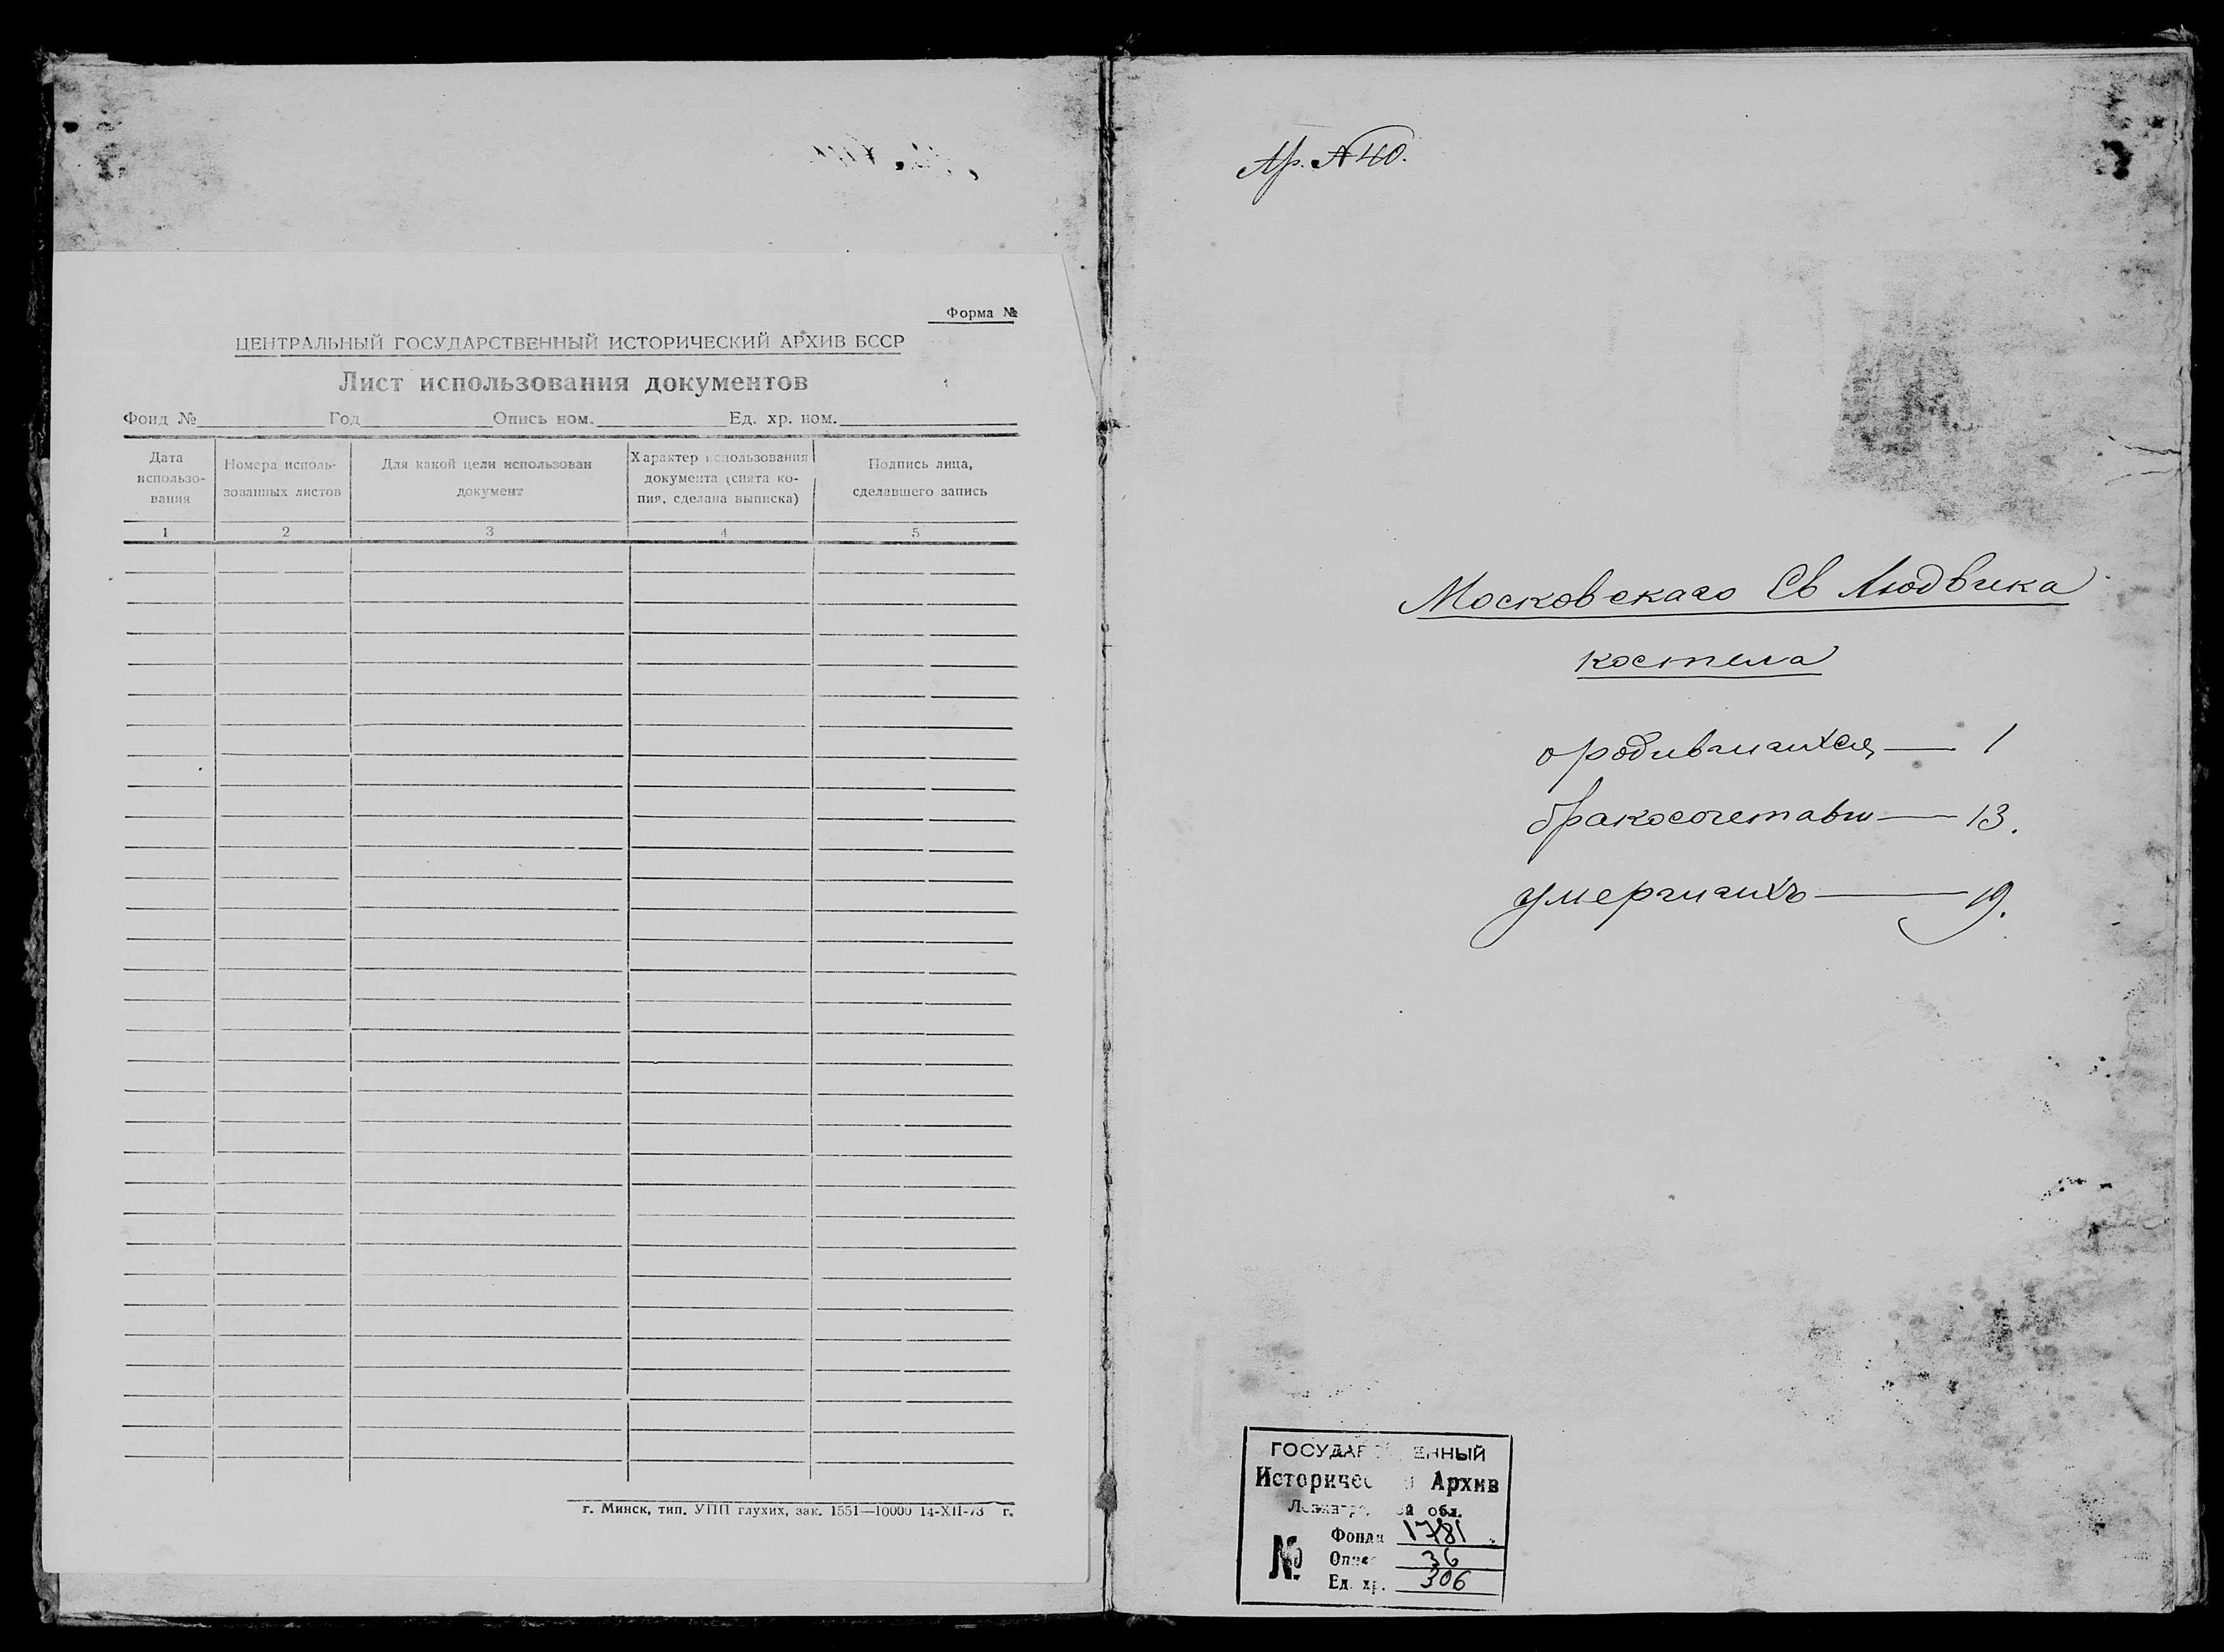 Форма №
ЦЕНТРАЛЬНЫЙ ГОСУДАРСТВЕННЫЙ ИСТОРИЧЕСКИЙ АРХИВ БССР
Лист использования документов
Фонд № Год Опись ном. Ед. хр. ном.
Дата использо-вания
Номера исполь-зованных листов
Для какой цели использован документ
Характер использования документа (снята ко-пия, сделана выписка)
Подпись лица, сделавшего запись
1 2 3 4 5
г. Минск, тип. УПП глухих, зак. 1551—10000 14-XII-73 г.
Ар. №40.
Московскаго Св Людвика
костела
о родившихся — 1
бракосочетавш — 13.
умершихъ — 19.
ГОСУДАР ЕННЫЙ
Историчес Архив
обл.
№
Фонд 1781
Опис 36
Ед. хр. 306